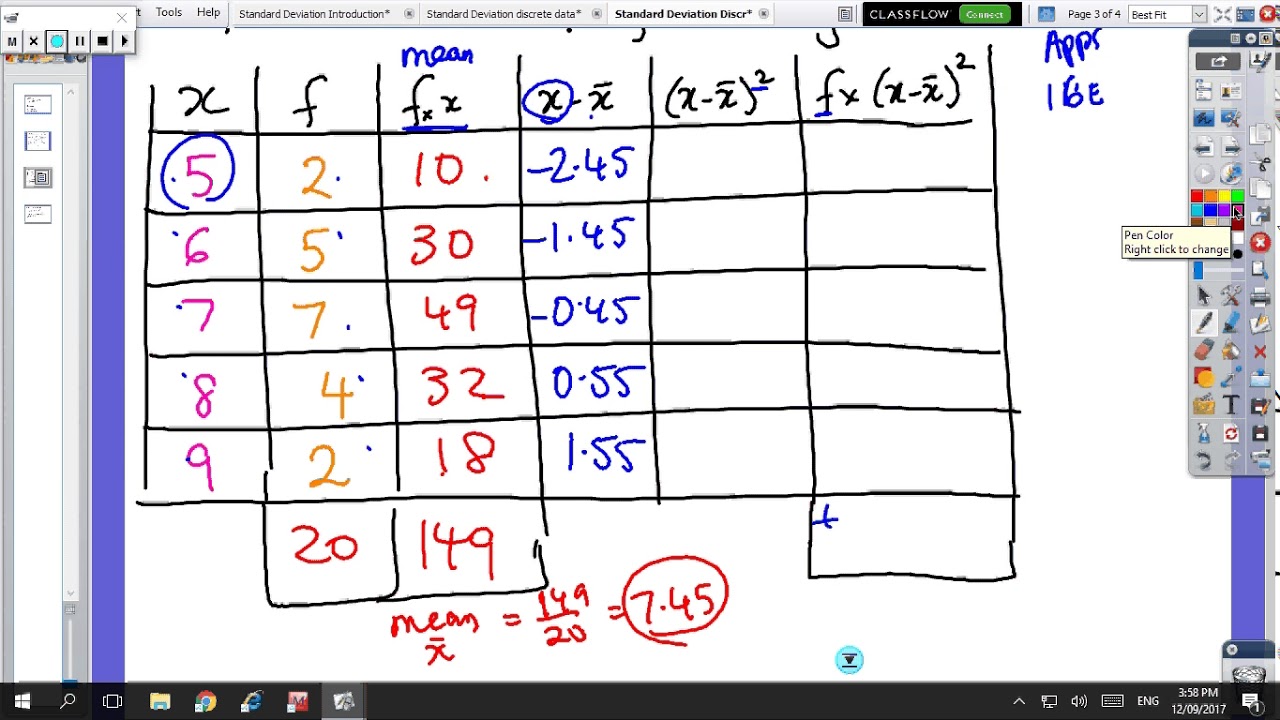 Tools Help Standard Deviation Introduction* Standard Deviation discrete data* Standard Deviation Discr* CLASSFLOW Connect Page 3 of 4 Best Fit
M
mean
x f f x x x - x̄ (x-x̄)² f x (x-x̄)²
5 2 10 -2.45
6 5 30 -1.45
7 7 49 -0.45
8 4 32 0.55
9 2 18 1.55
20 149 +
mean = 149/20 = 7.45
x̄
Pen Color
Right click to change
ENG
3:58 PM
12/09/2017